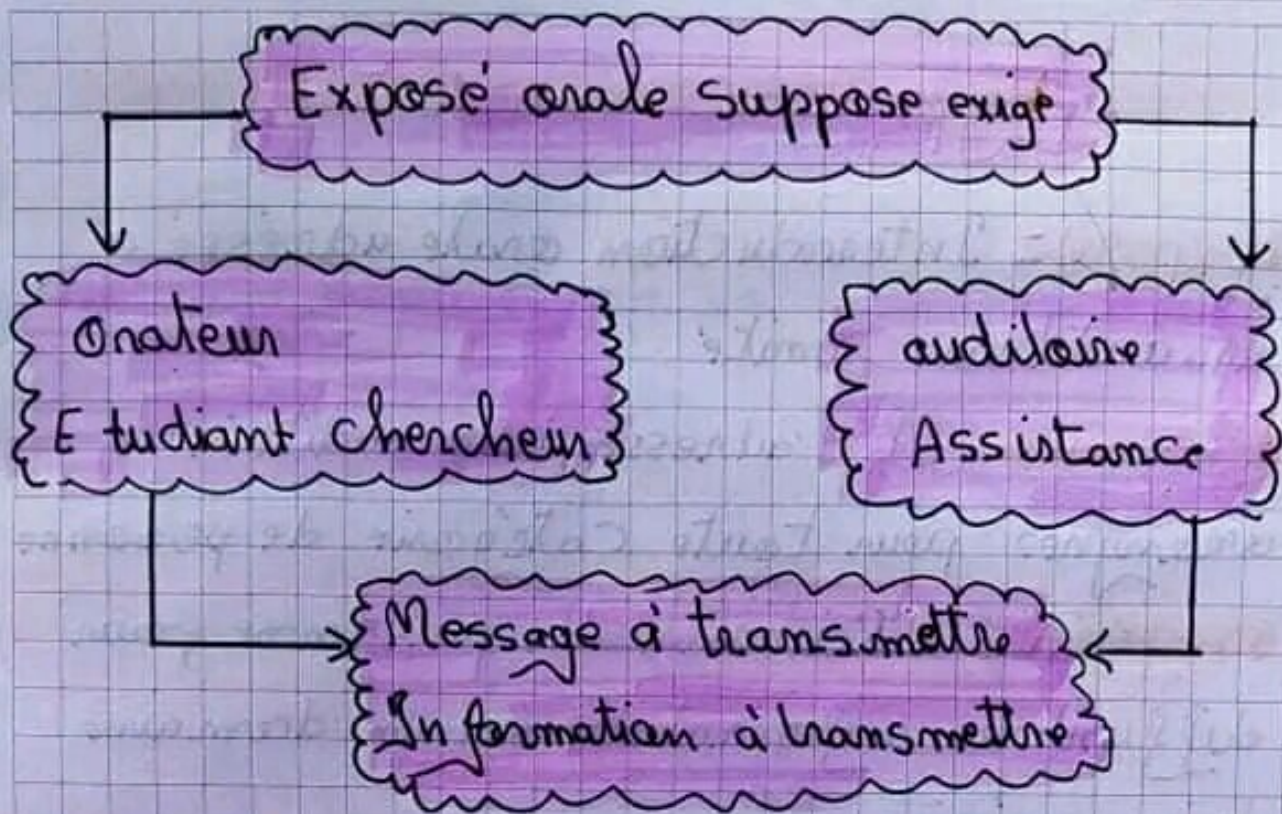 Exposé orale suppose exige
Orateur
Etudiant chercheur
auditoire
Assistance
Message à transmettre
Information à transmettre